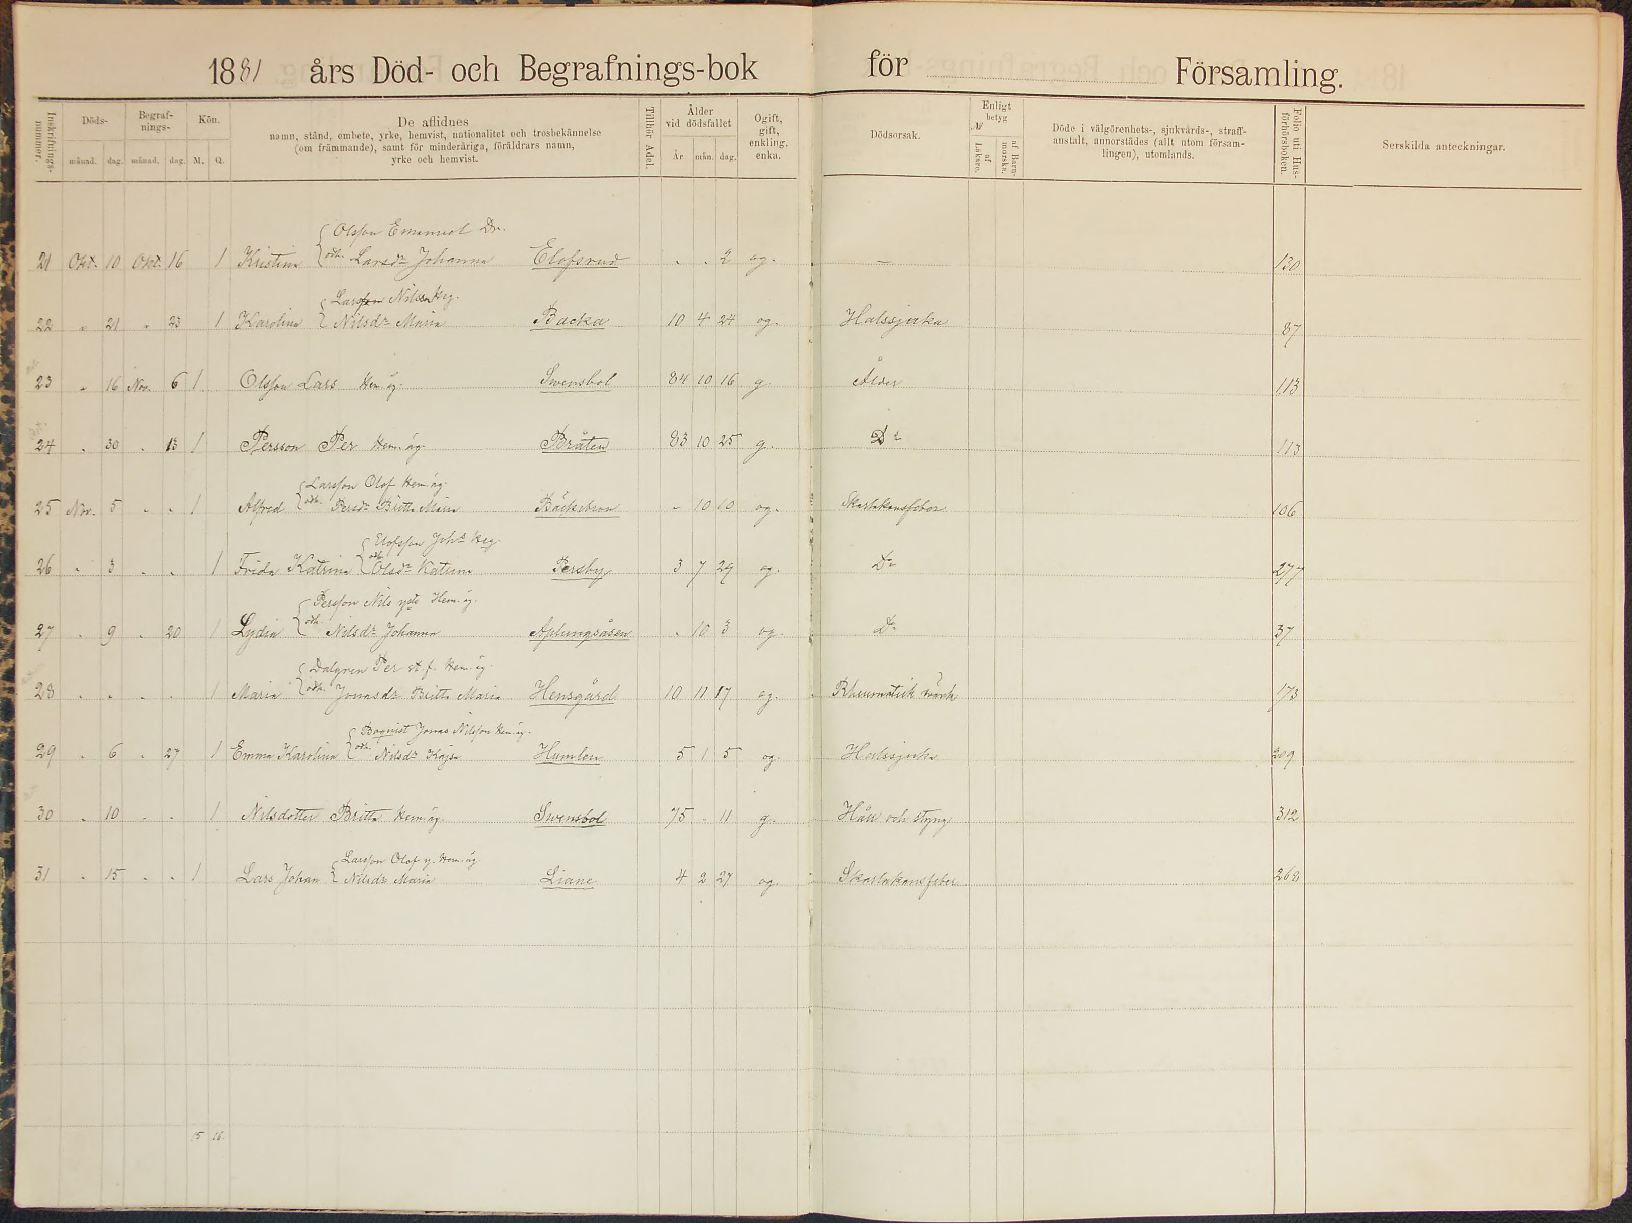 1881 års Död- och Begrafnings-bok för Församling.
Inskrifningsnummer.
Döds-
månad. dag.
Begrafnings-
månad. dag.
Kön.
M. Q.
De aflidnes
namn, stånd, embete, yrke, hemvist, nationalitet och trosbekännelse
(om främmande), samt för minderåriga, föräldrars namn,
yrke och hemvist.
Tillhör Adel.
Ålder
vid dödsfallet
År mån. dag.
Ogift,
gift,
enkling,
enka.
Dödsorsak.
Enligt
betyg
№
af Läkare.
af Barnmorska.
Döde i välgörenhets-, sjukvårds-, straff-
anstalt, annorstädes (allt utom församlingen), utomlands.
Folio uti Husförhörsboken.
Serskilda anteckningar.
Olsson Emanuel Dr.
21 Okt. 10 Okt. 16 1 Kristina o. Larsdr Johanna Elofsrud . . 2 og. — 130
Larsson Nilsson Heg.
22 " 21 " 23 1 Karolina Nilsdr Maria Backa 10 4 24 og. Halssjuka 87
23 " 16 Nov. 6 1 Olsson Lars Hem.äg. Swensbol 84 10 16 g. Ålder 113
24 " 30 " 13 1 Persson Per Hem.äg. Bråten 83 10 25 g. Do 113
Larsson Olof Hem.äg.
25 Nov. 5 " " 1 Alfred Persdr Britta Maria Bäckebron - 10 10 og. Skarlakansfeber 106
Elofsson Johs Heg.
26 " 3 " " 1 Frida Katrina Olsdr Katrina Persby 3 7 29 og. Do 277
Persson Nils Hem.äg.
27 " 9 " 20 1 Lydia Nilsdr Johanna Aplungsåsen . 10 3 og. Do 37
Dalgren Per st.f. Hem.äg.
28 " " " " 1 Maria Jonasdr Britta Maria Hensgård 10 11 17 og. Rheumatisk värk 173
Boqvist Jonas Nilsson Hem.äg.
29 " 6 " 27 1 Emma Karolina Nilsdr Kajsa Humlen 5 1 5 og Halssjuka 209
30 " 10 " " 1 Nilsdotter Britta Hem.äg. Swensbol 75 - 11 g. Håll och styng 312
Larsson Olof y. Hem.äg
31 " 15 " " 1 Lars Johan Nilsdr Maria Liane 4 2 27 og. Skarlakansfeber 268
15 16.